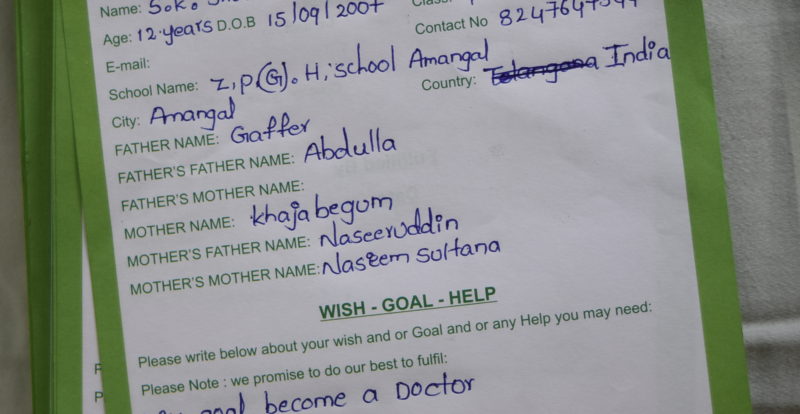 Name: S.K.
Age: 12.years D.O.B 15/09/2007
Contact No 82476
E-mail:
School Name: Z.P.(G). H.school Amangal
City: Amangal Country: Telangana India
FATHER NAME: Gaffer
FATHER'S FATHER NAME: Abdulla
FATHER'S MOTHER NAME:
MOTHER NAME: khaja begum
MOTHER'S FATHER NAME: Naseeruddin
MOTHER'S MOTHER NAME: Naseem sultana
WISH - GOAL - HELP
Please write below about your wish and or Goal and or any Help you may need:
Please Note : we promise to do our best to fulfil:
goal become a Doctor